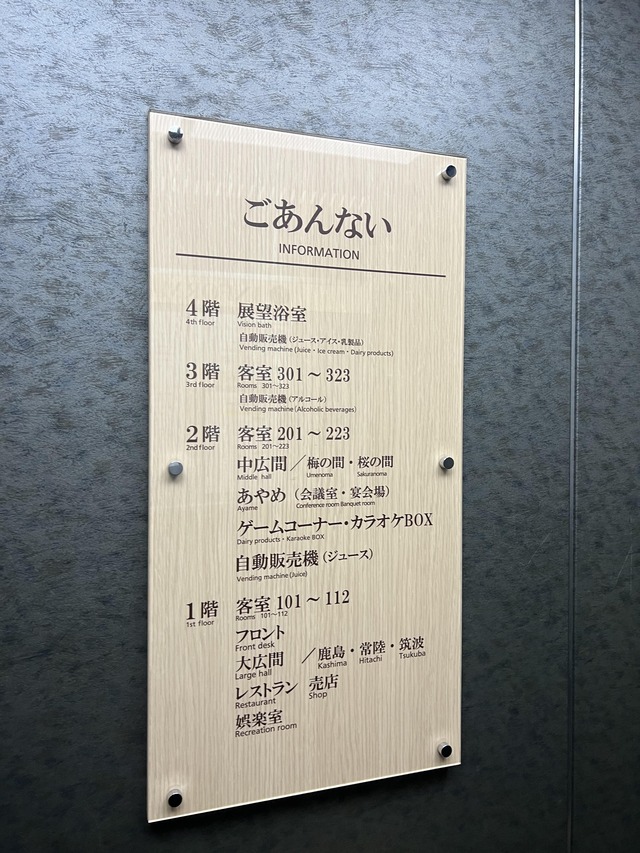 ごあんない
INFORMATION
4階 展望浴室
4th floor Vision bath
自動販売機（ジュース・アイス・乳製品）
Vending machine (Juice・Ice cream・Dairy products)
3階 客室 301～323
3rd floor Rooms 301～323
自動販売機（アルコール）
Vending machine (Alcoholic beverages)
2階 客室 201～223
2nd floor Rooms 201～223
中広間／梅の間・桜の間
Middle hall Umenoma Sakuranoma
あやめ（会議室・宴会場）
Ayame Conference room Banquet room
ゲームコーナー・カラオケBOX
Dairy products・Karaoke BOX
自動販売機（ジュース）
Vending machine (Juice)
1階 客室 101～112
1st floor Rooms 101～112
フロント
Front desk
大広間 ／鹿島・常陸・筑波
Large hall Kashima Hitachi Tsukuba
レストラン 売店
Restaurant Shop
娯楽室
Recreation room